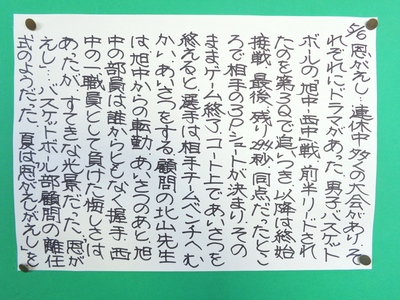 5/6 恩がえし…連休中多くの大会があり、そ
れぞれにドラマがあった。男子バスケット
ボールの旭中・西中戦。前半リードされ
たのを第3Qで追いつき、以降は終始
接戦。最後、残り 秒、同点だったとこ
ろで相手の3Pシュートが決まり、その
ままゲーム終了。コート上であいさつを
終えると選手は相手チームベンチへ向
かい、あいさつをする。顧問の北山先生
は旭中からの転勤。あいさつのあと、旭
中の部員は誰からともなく握手。西
中の一職員として負けた悔しさは
あったが、すてきな光景だった。恩が
えし…。バスケットボール部顧問の離任
式のようだった。夏は恩がえしがえし」を